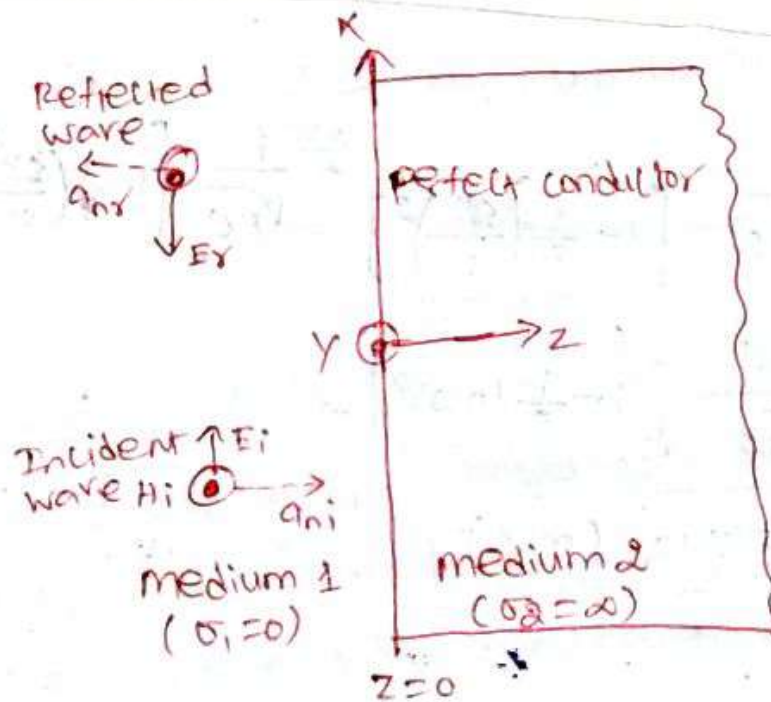 X
Reflected
wave
anr
Er
Perfect conductor
Y
Z
Incident
wave Hi
Ei
ani
medium 1
(σ₁=0)
medium 2
(σ2=∞)
Z=0